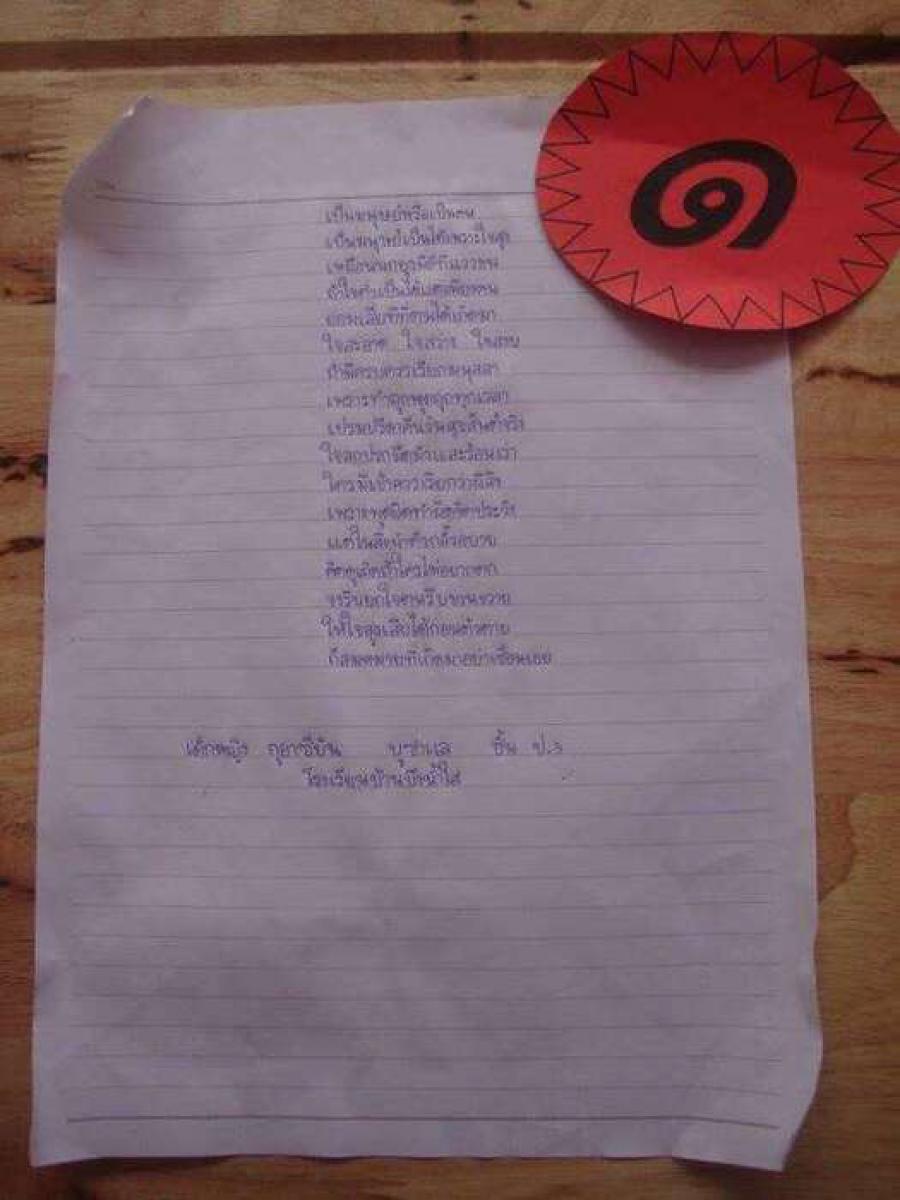 ๑
เป็นมนุษย์หรือเป็นคน
เป็นมนุษย์เป็นได้เพราะใจสูง
เหมือนนกยูงมีดีที่แววขน
ถ้าใจต่ำเป็นได้แต่เพียงคน
ย่อมเสียทีที่ตนได้เกิดมา
ใจสะอาด ใจสว่าง ใจสงบ
ถ้ามีครบควรเรียกมนุสสา
เพราะทำถูกพูดถูกทุกเวลา
เปรมปรีดาคืนวันสุขสันต์จริง
ใจสกปรกมืดมัวและร้อนเร่า
ใครมีเข้าควรเรียกว่าผีสิง
เพราะพูดผิดทำผิดจิตประวิง
แต่ในสิ่งนำตัวกลั้วอบาย
คิดดูเถิดถ้าใครไม่อยากตก
จงรีบยกใจตนรีบขวนขวาย
ให้ใจสูงเสียได้ก่อนตัวตาย
ก็สมหมายที่เกิดมาอย่าเชือนเอย
เด็กหญิง ชั้น ป.๖
โรงเรียนบ้านบึงน้ำใส